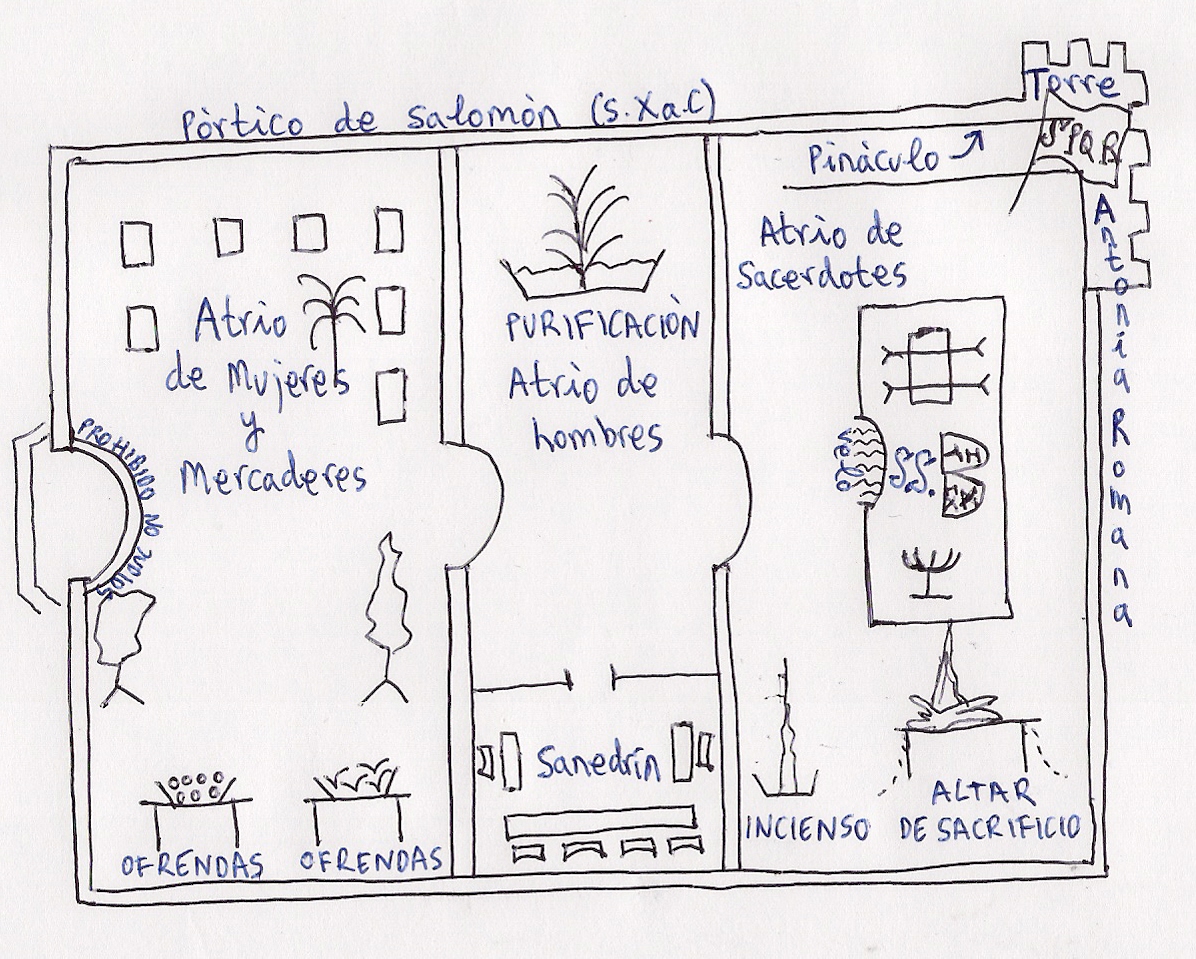 Pòrtico de Salomòn (s.Xa.C)
Torre
SPQR
Pinàculo
Antonia Romana
Atrio de
Sacerdotes
Atrio
de Mujeres
y
Mercaderes
PURIFICACIÒN
Atrio de
hombres
PROHIBIDO NO JUDIOS
Velo
S.S.
Sanedrín
INCIENSO
ALTAR
DE SACRIFICIO
OFRENDAS
OFRENDAS